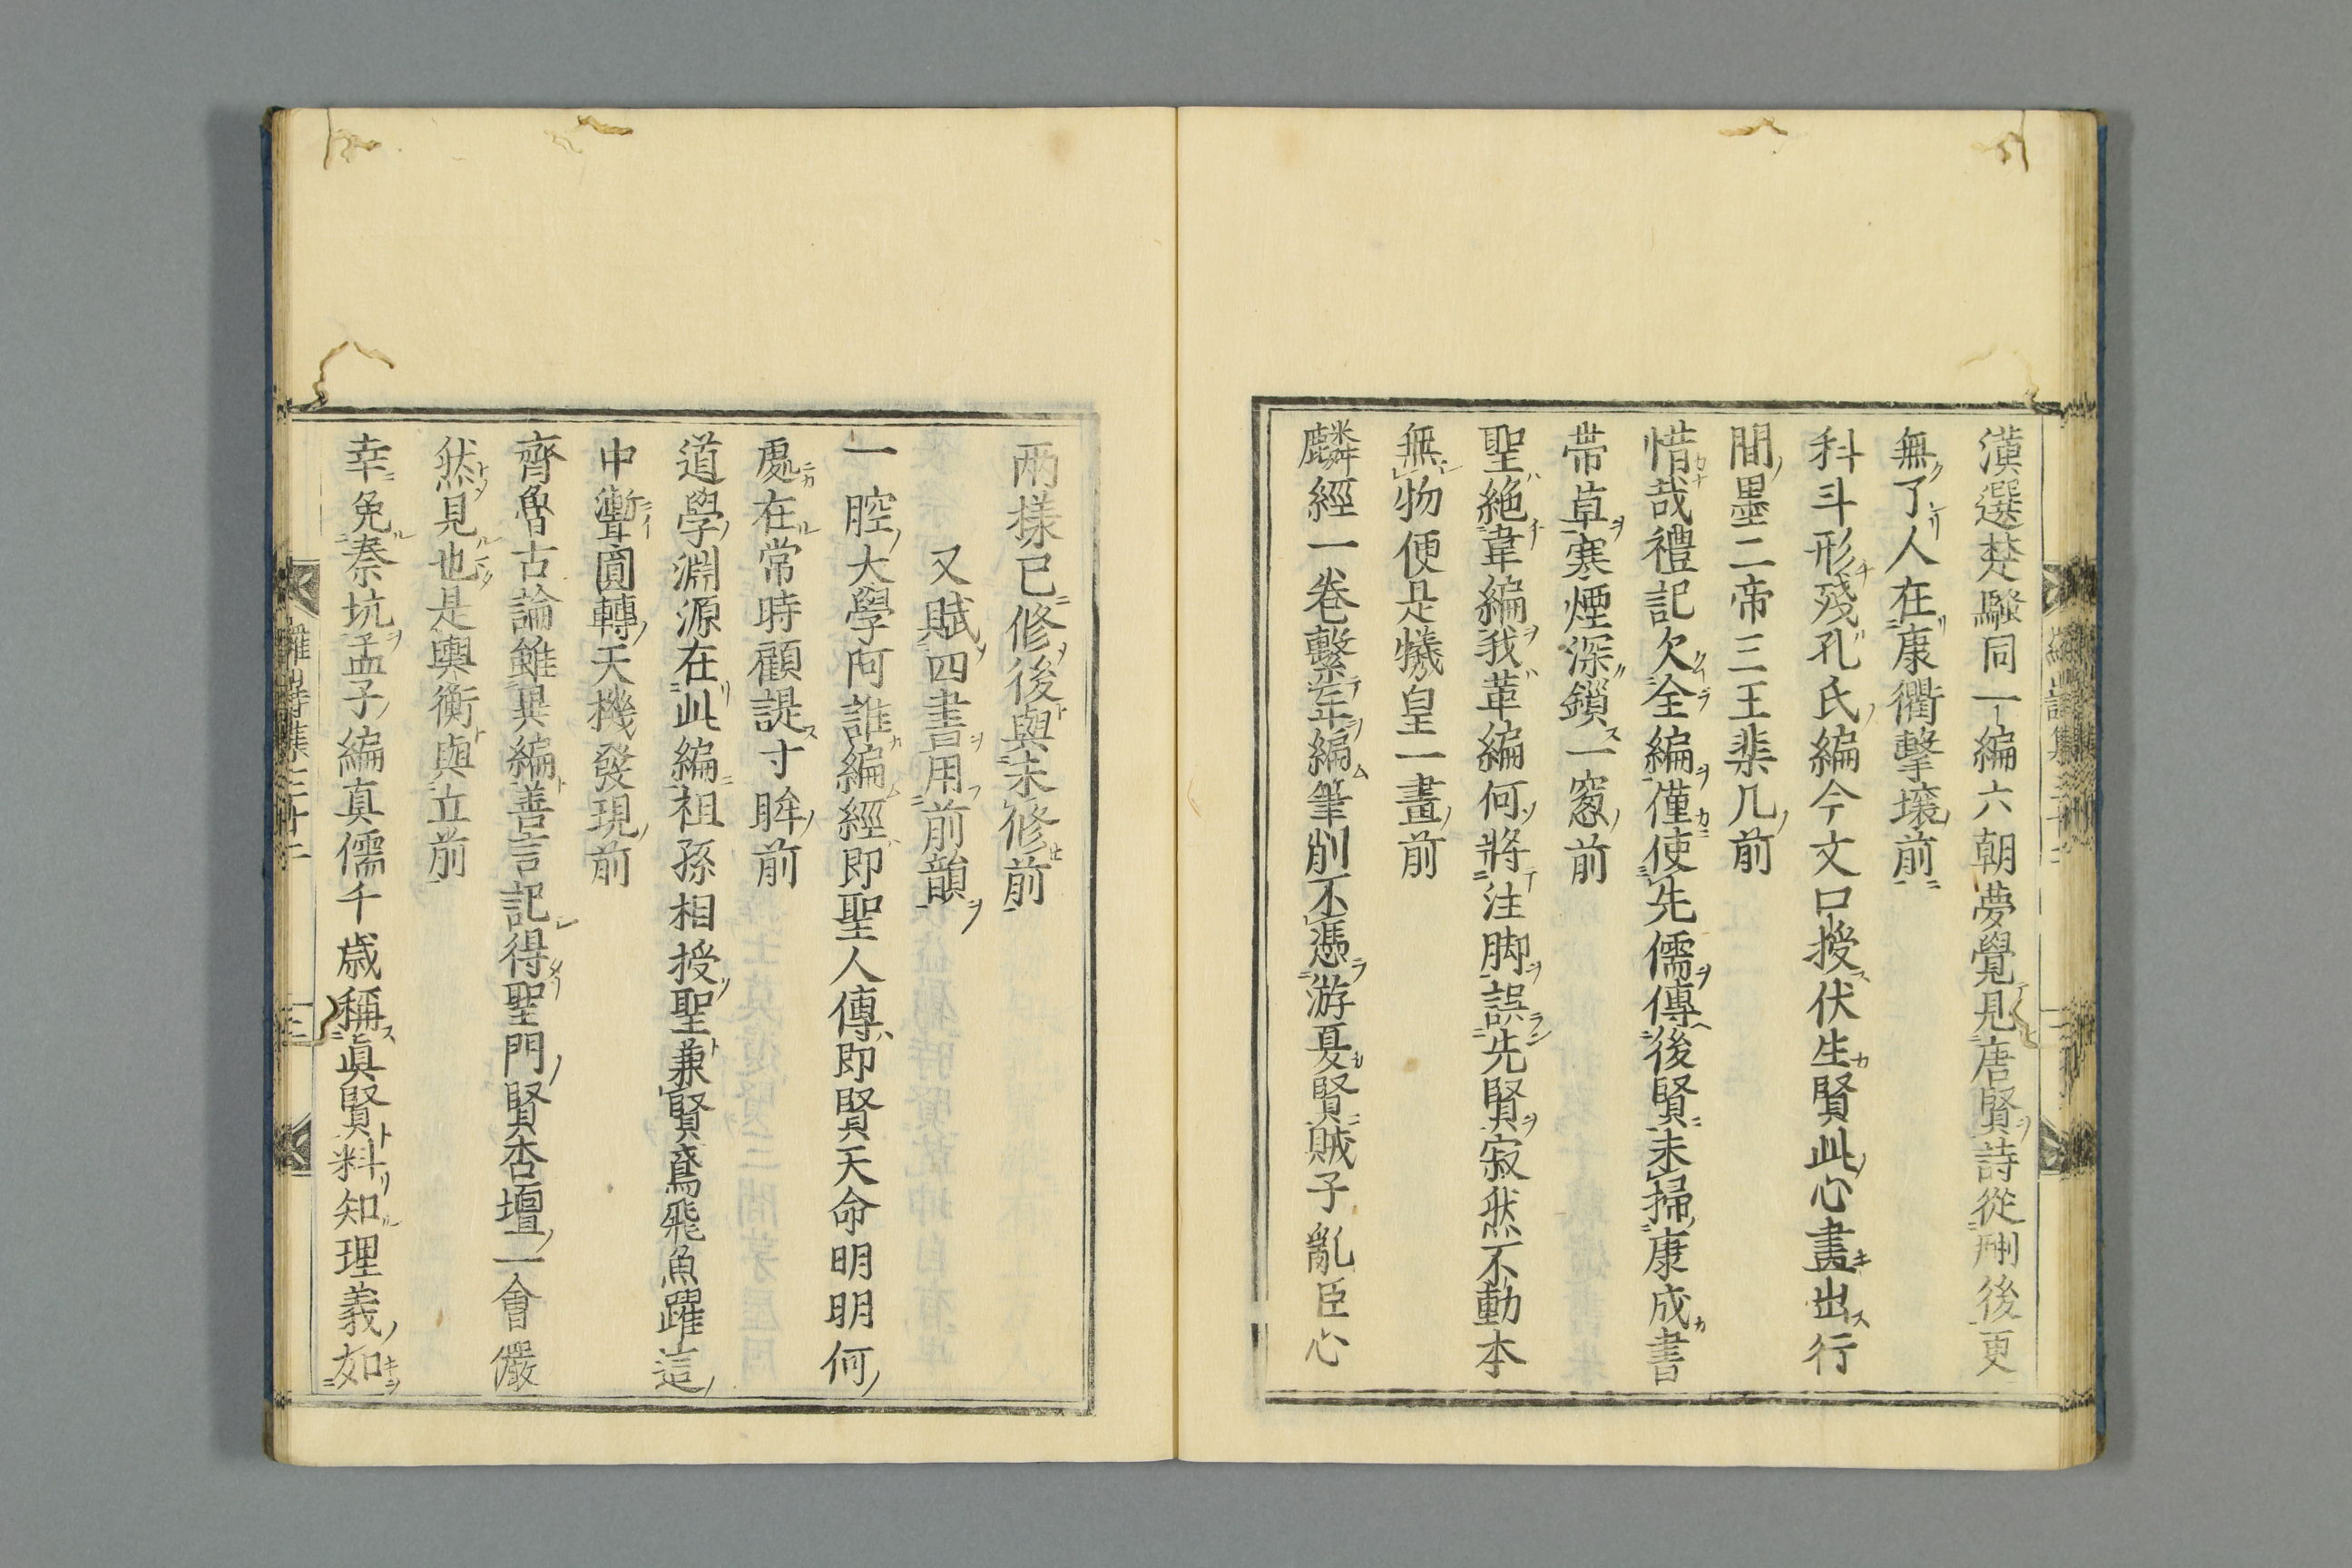 漢選楚騷同一編六朝夢覺見唐賢詩從刪後更
無了人在康衢擊壤前
科斗形殘孔氏編今文口授伏生賢此心畫出行
間墨二帝三王棐几前
惜哉禮記欠全編僅使先儒傳後賢未掃康成書
帶草寒煙深鎖一窻前
聖絶韋編我革編何將注脚誤先賢寂然不動本
無物便是犧皇一畫前
麟經一卷繫年編筆削不憑游夏賢賊子亂臣心
兩樣已修後與未修前
又賦四書用前韻
一腔大學阿誰編經即聖人傳即賢天命明明何
處在常時顧諟寸眸前
道學淵源在此編祖孫相授聖兼賢鳶飛魚躍這
中靈圓轉天機發現前
齊魯古論雖異編善言記得聖門賢杏壇一會儼
然見也是輿衡與立前
幸免秦坑孟子編真儒千歳稱眞賢料知理義如